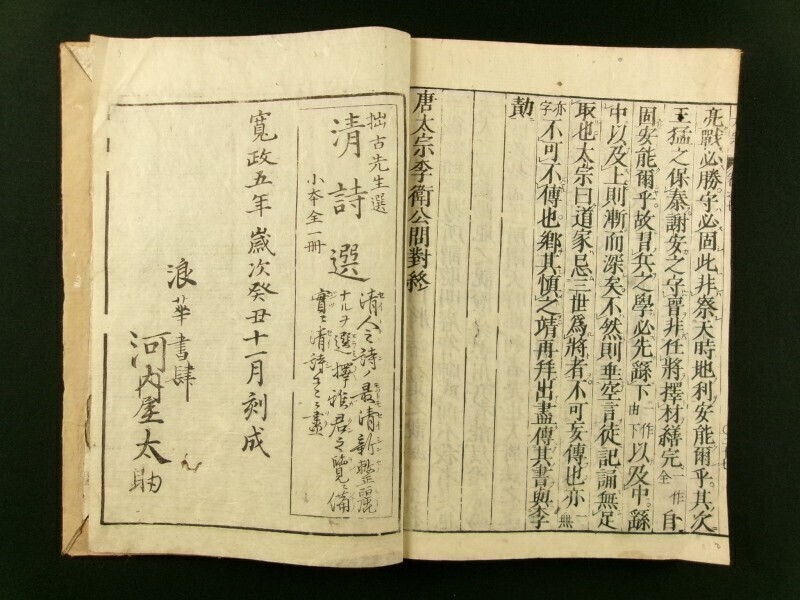 亮戰必勝守必固此非察天時地利安能爾乎其次
王猛之保泰謝安之守晉非任將擇材繕完一作全自
固安能爾乎故習兵之學必先繇下一作由下以及中繇
中以及上則漸而深矣不然則垂空言徒記誦無足
取也太宗曰道家忌三世爲將者不可妄傳也亦一無
亦字不可不傳也卿其慎之靖再拜出盡傳其書與李
勣
唐太宗李衛公問對終
拙古先生選
清詩選
小本全一冊
清人之詩ノ最清新整麗
ナルヲ選擇雅君之覽ニ備
實ニ清詩
寬政五年歲次癸丑十一月刻成
浪華書肆
河内屋太助